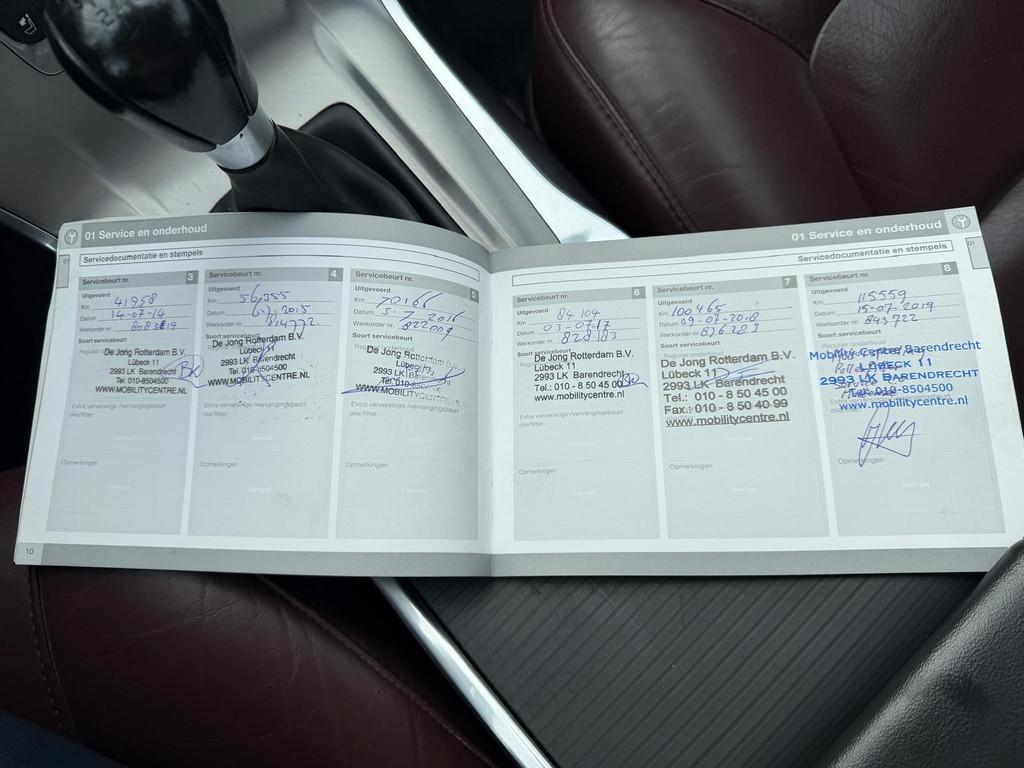 01 Service en onderhoud
Servicedocumentatie en stempels
Servicebeurt nr. 3
Uitgevoerd
Km 41958
Datum 14-07-14
Werkorder nr.
Soort servicebeurt
De Jong Rotterdam B.V.
Lübeck 11
2993 LK Barendrecht
Tel. 010-8504500
WWW.MOBILITYCENTRE.NL
Extra verversings-/vervangingsbeurt
olie/filter:
Stempel
Opmerkingen
10
Servicebeurt nr. 4
Uitgevoerd
Km 56355
Datum
Werkorder nr. 814772.
Soort servicebeurt
De Jong Rotterdam B.V.
Lübeck 11
2993 LK Barendrecht
Tel. 010-8504500
WWW.MOBILITYCENTRE.NL
Extra verversings-/vervangingsbeurt
olie/filter:
Opmerkingen
Servicebeurt nr. 5
Uitgevoerd
Km 70166
Datum 5-7-2016
Werkorder nr. 822009
Soort servicebeurt
De Jong Rotterdam B.V.
Lübeck 11
2993 LK Barendrecht
WWW.MOBILITYCENTRE.NL
Extra verversings-/vervangingsbeurt
olie/filter:
Stempel
Opmerkingen
Stempel
01 Service en onderhoud
01
Servicedocumentatie en stempels
Servicebeurt nr. 6
Uitgevoerd
Km 84104
Datum 03-07-17
Werkorder nr. 828183
Soort servicebeurt
De Jong Rotterdam B.V.
Lübeck 11
2993 LK Barendrecht
Tel.: 010 - 8 50 45 00
www.mobilitycentre.nl
Extra verversings-/vervangingsbeurt
olie/filter:
Stempel
Opmerkingen
Stempel
Servicebeurt nr. 7
Uitgevoerd
Km 100465
Datum 09-07-2018
Werkorder nr. 836283
Soort servicebeurt
De Jong Rotterdam B.V.
Lübeck 11
2993 LK Barendrecht
Tel.: 010 - 8 50 45 00
Fax.: 010 - 8 50 40 99
www.mobilitycentre.nl
Stempel
Opmerkingen
Stempel
Servicebeurt nr. 8
Uitgevoerd
Km 115559
Datum 15-07-2019
Werkorder nr. 843722
Soort servicebeurt
Mobility Centre Barendrecht
LÜBECK 11
2993 LK BARENDRECHT
Tel. 010-8504500
www.mobilitycentre.nl
Opmerkingen
Stempel